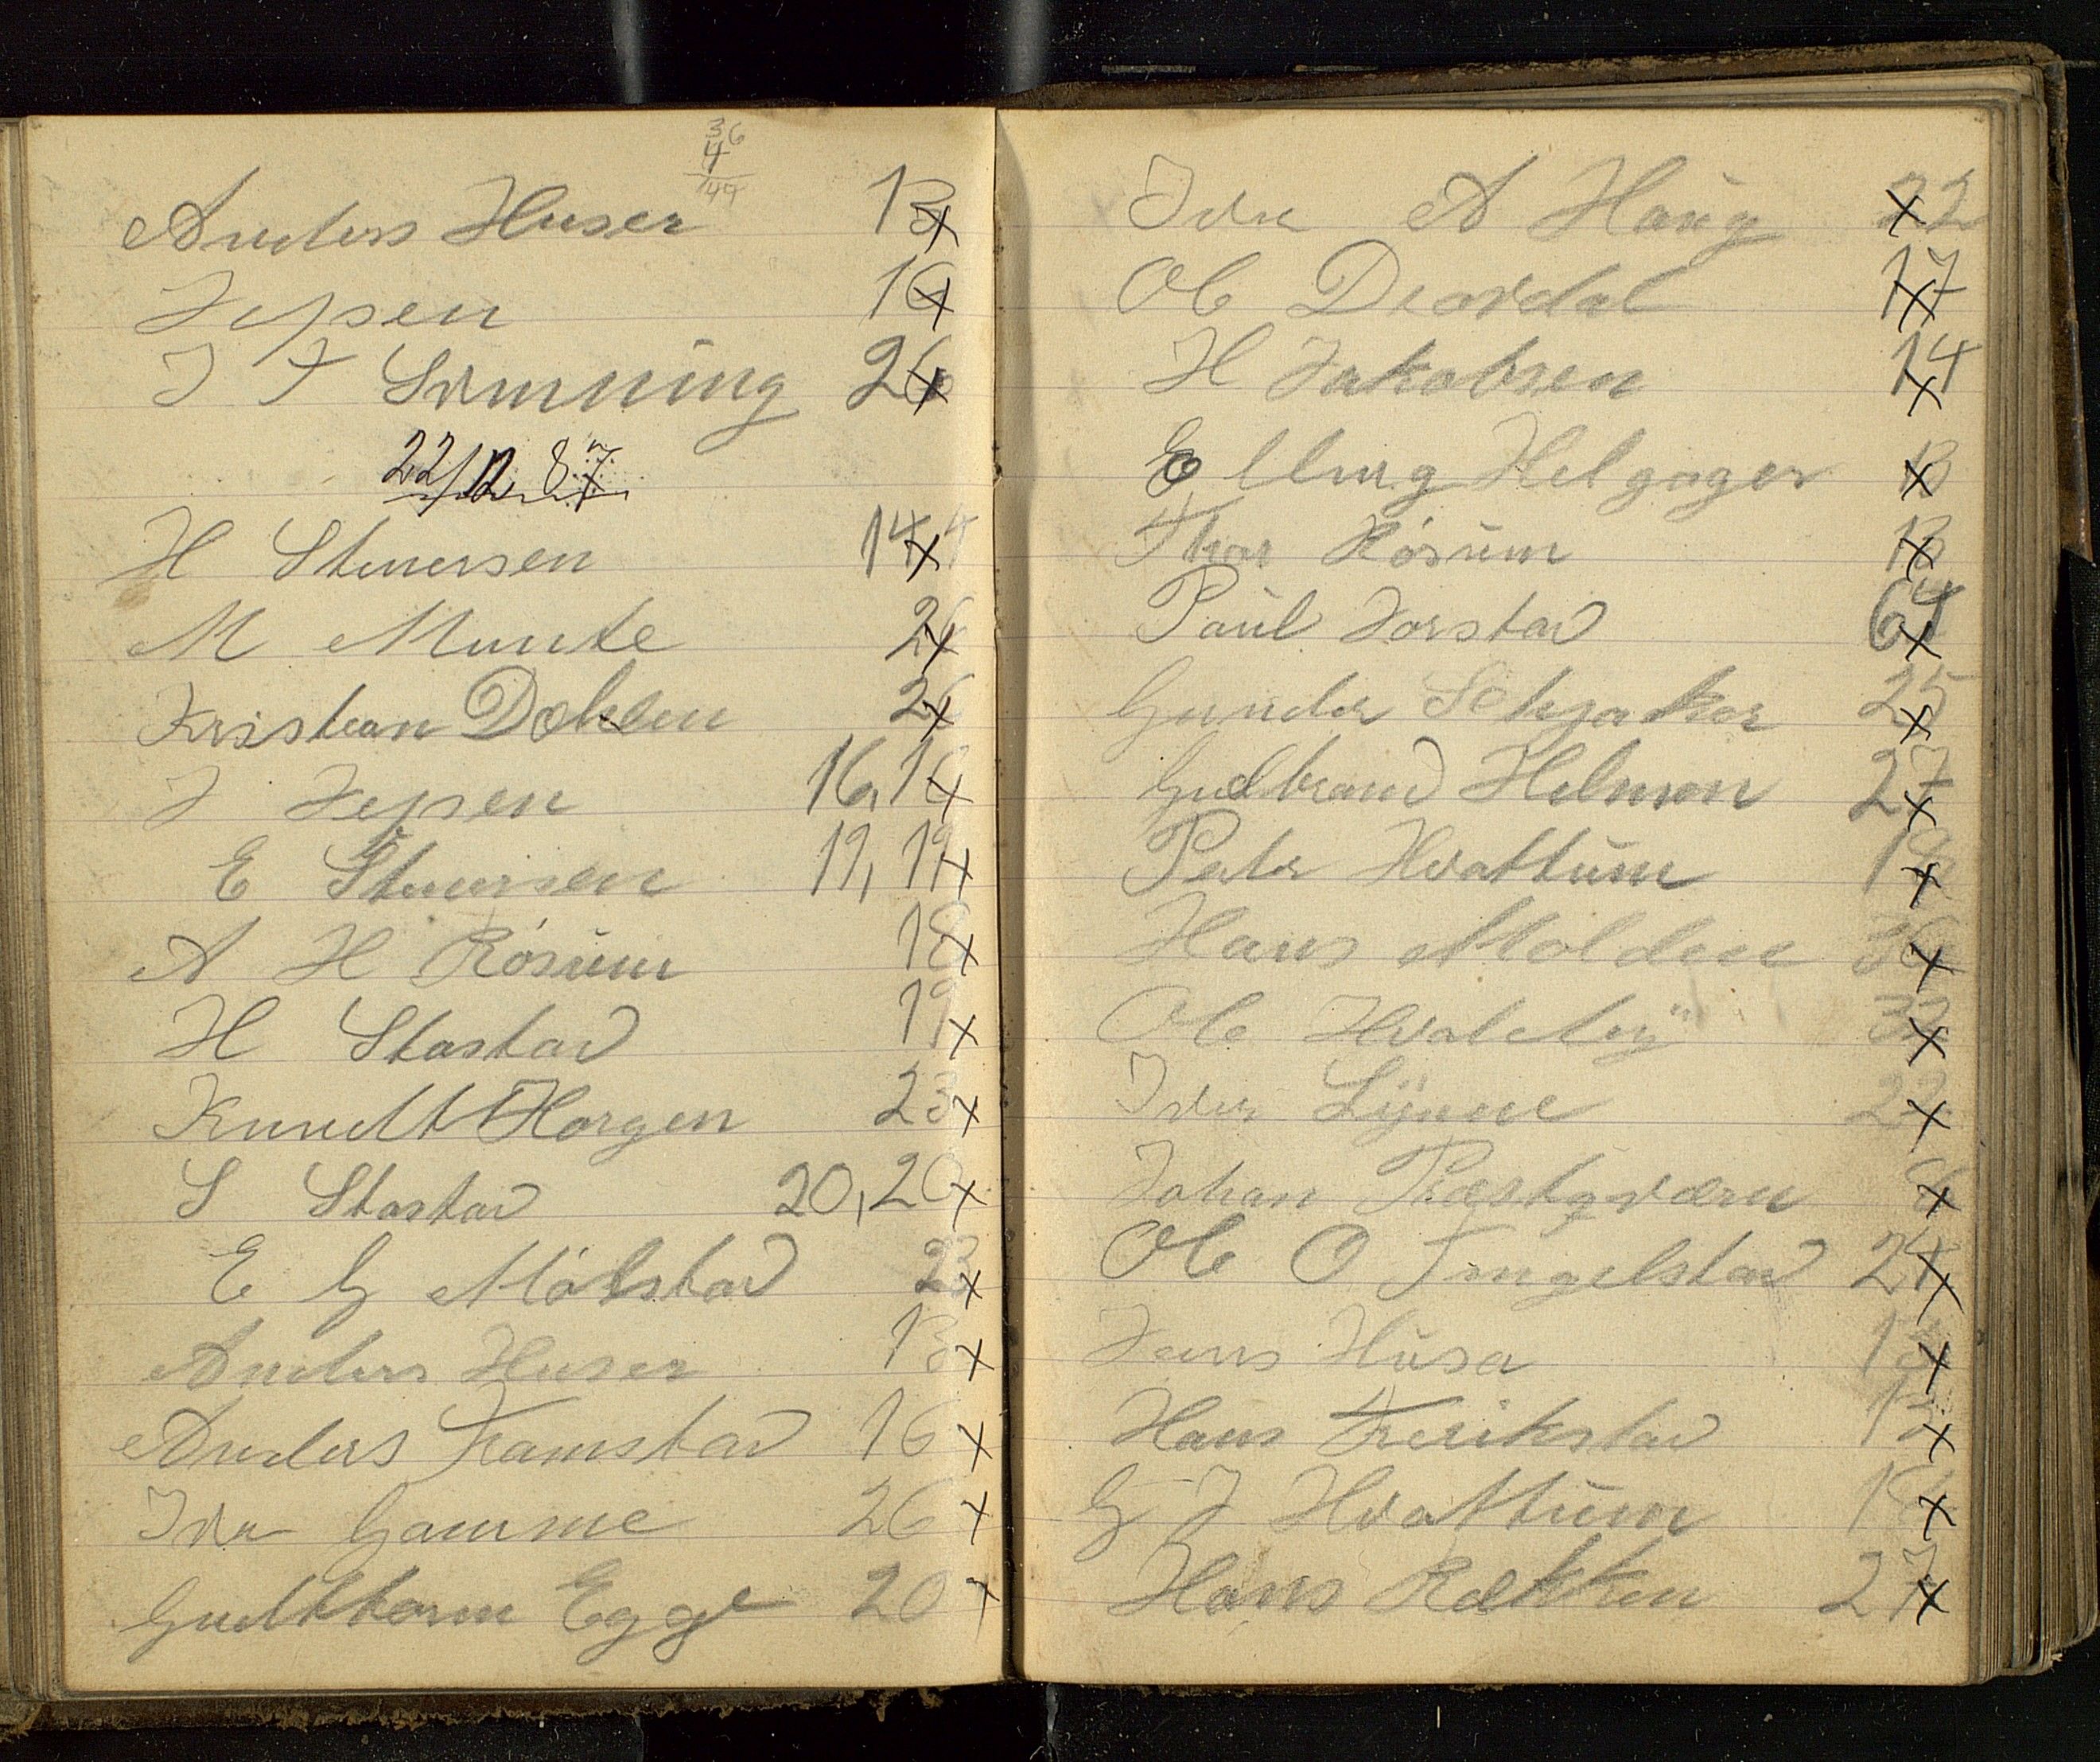 36
4
144
Anders Huser 13x
Jepsen 16x
J F Svinning 26x
22/12 87
H Stenersen 14x4
M Munte 26x
Kristian Dehlen 26x
J Jepsen 16,16x
E Stenersen 19,19x
A H Rósum 18x
H Stastad 19x
Knudt Horgen 23x
S Stastad 20,20x
E G Mólstad 23x
Anders Huser 13x
Anders Framstad 16 x
Iver Gamme 26 x
Gudttorm Egge 20 x
Iver A Haug 22
Ole Diordal 17
H Jakobsen 14
Elling Helgager 13
Thor Rósum 13
Paul Jorstad 64
Gunder Schjaker 25
Gudbrand Helmen 27
Peter Hvattum
Hans Molden 36
Ole Hvaleby 32
Iver Lynne 22
Johan Præstgværn
Ole O Tingelstad 24
Jens Husa 13
Hans Frerikstad 13
G J Hvattum
Hans Rækken 27